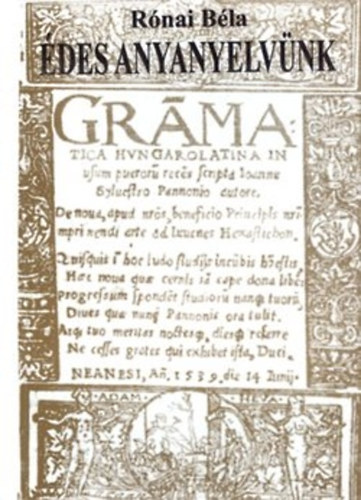 Rónai Béla
ÉDES ANYANYELVÜNK
GRÃMA-
TICA HVNGAROLATINA IN
usum puerorũ recẽs scripta Ioanne
Syluestro Pannonio autore.
De noua, apud nrõs, beneficio Principis nrĩ
imprimendi arte ad Iuuenes Hexastichon.
Quisquis ĩ hoc ludo studijs incũbis hõestis
Hæc noua quæ cernis iã cape dona libẽs
progressum spondẽt studiorũ nanq tuorũ,
Diues quæ nunq Pannonis ora tulit.
Atq tuo meritas noctesq, diesq referre
Ne cesses grates qui exhibet ista, Duci.
NEANESI, Añ. 1539. die 14 Iunij.
ADAM HEVA